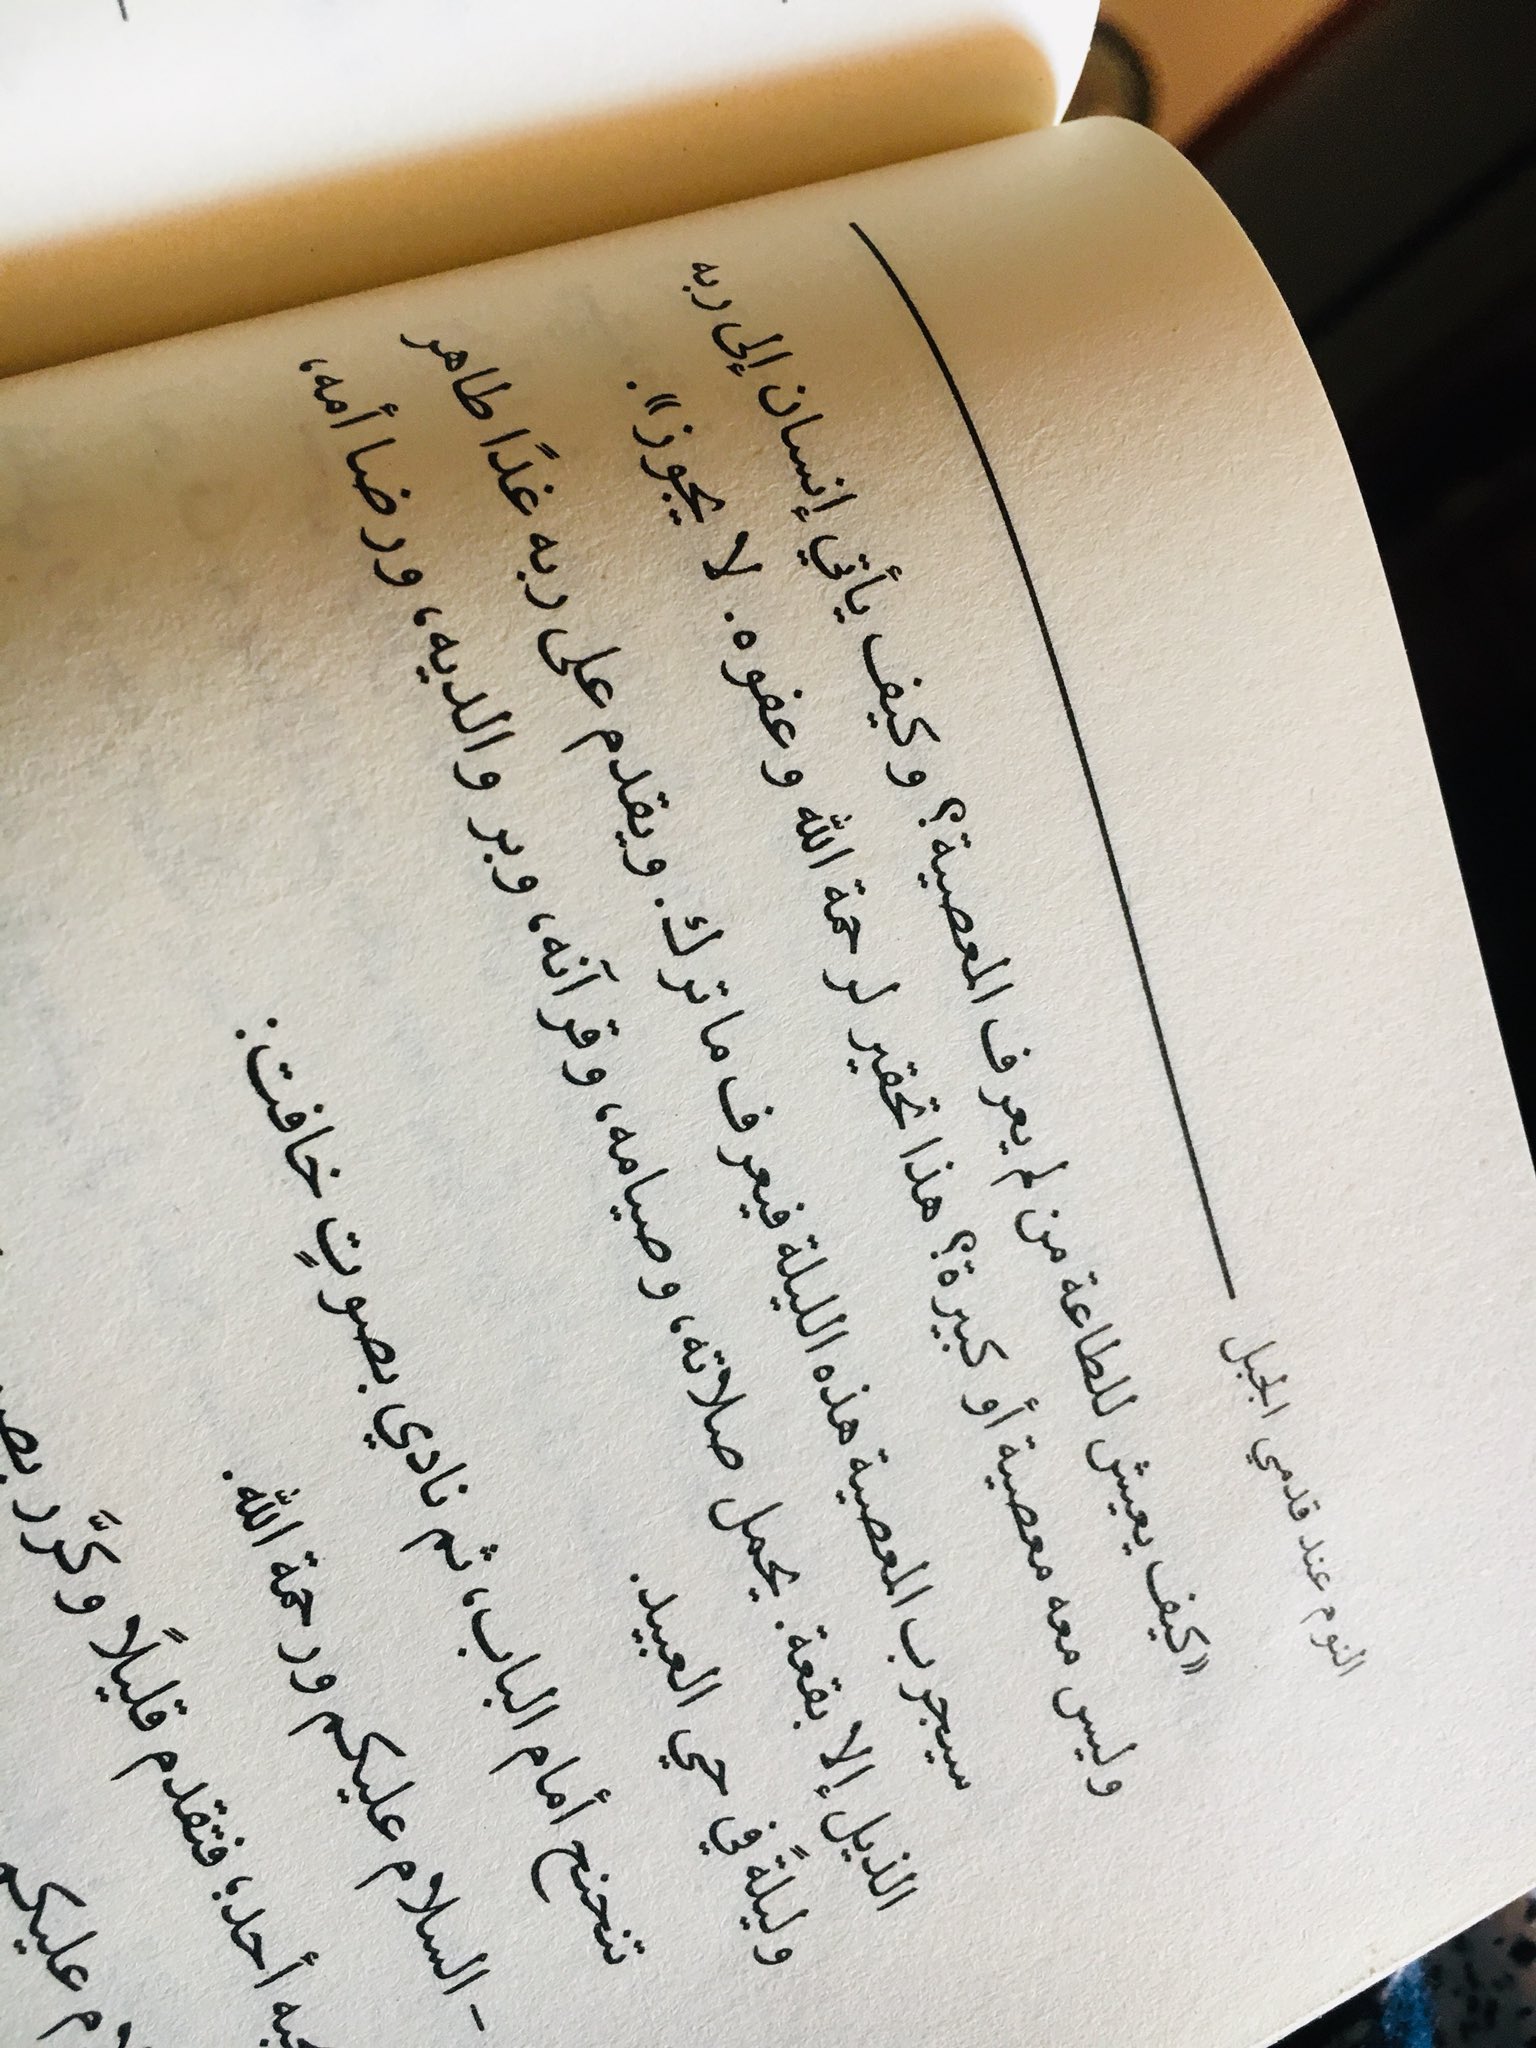 النوم عند قدمي الجبل
«كيف يعيش للطاعة من لم يعرف المعصية؟ وكيف يأتي إنسان إلى ربه
وليس معه معصية أو كبيرة؟ هذا تحقير لرحمة الله وعفوه. لا يجوز».
سيجرب المعصية هذه الليلة فيعرف ما ترك. ويقدم على ربه غدًا طاهر
الذيل إلا بقعة. يحمل صلاته، وصيامه، وقرآنه، وبر والديه، ورضا أمه،
وليلةً في حي العبيد.
تنحنح أمام الباب، ثم نادي بصوتٍ خافت:
- السلام عليكم ورحمة الله.
أحد، فتقدم قليلًا وكرَّر
عليكم